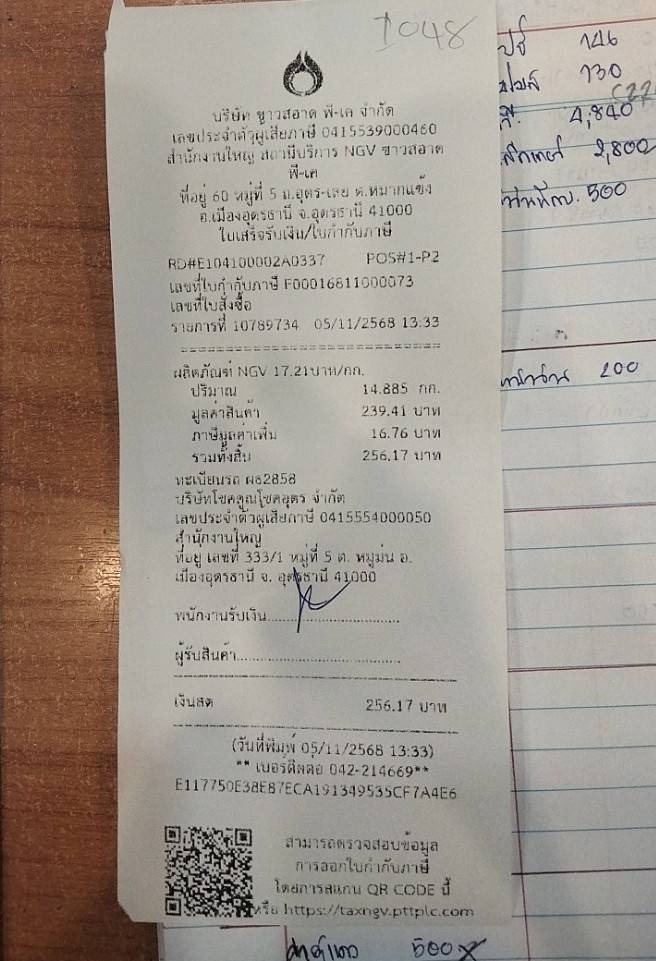 1048
บริษัท ขาวสอาด พี-เค จำกัด
เลขประจำตัวผู้เสียภาษี 0415539000460
สำนักงานใหญ่ สถานีบริการ NGV ขาวสอาด
พี-เค
ที่อยู่ 60 หมู่ที่ 5 ถ.อุดร-เลย ต.หมากแข้ง
อ.เมืองอุดรธานี จ.อุดรธานี 41000
ใบเสร็จรับเงิน/ใบกำกับภาษี
RD#E104100002A0337 POS#1-P2
เลขที่ใบกำกับภาษี F00016811000073
เลขที่ใบสั่งซื้อ
รายการที่ 10789734 05/11/2568 13:33
ผลิตภัณฑ์ NGV 17.21บาท/กก.
ปริมาณ 14.885 กก.
มูลค่าสินค้า 239.41 บาท
ภาษีมูลค่าเพิ่ม 16.76 บาท
รวมทั้งสิ้น 256.17 บาท
ทะเบียนรถ ผธ2858
บริษัทโชคคูณโชคอุดร จำกัด
เลขประจำตัวผู้เสียภาษี 0415554000050
สำนักงานใหญ่
ที่อยู่ เลขที่ 333/1 หมู่ที่ 5 ต. หมูม่น อ.
เมืองอุดรธานี จ. อุดรธานี 41000
พนักงานรับเงิน..............................
ผู้รับสินค้า..............................
เงินสด 256.17 บาท
(วันที่พิมพ์ 05/11/2568 13:33)
** เบอร์ติดต่อ 042-214669**
E117750E38E87ECA191349535CF7A4E6
สามารถตรวจสอบข้อมูล
การออกใบกำกับภาษี
โดยการสแกน QR CODE นี้
หรือ https://taxngv.pttplc.com
146
130
4,840
2,800
500
200
500